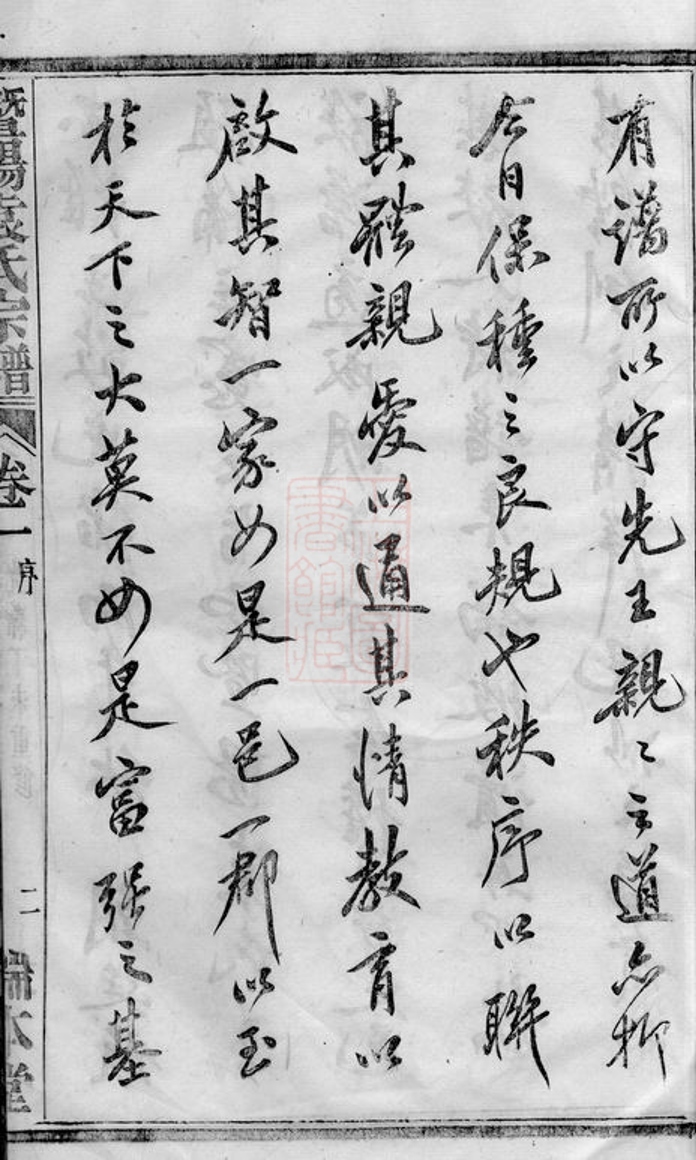 有譜所以守先王親〻之道亦抑
今日保種之良規也秩序以聯
其體親愛以通其情教育以
啟其智一家如是一邑一郡以至
於天下之大莫不如是富强之基
暨陽袁氏宗譜 卷一 序 二